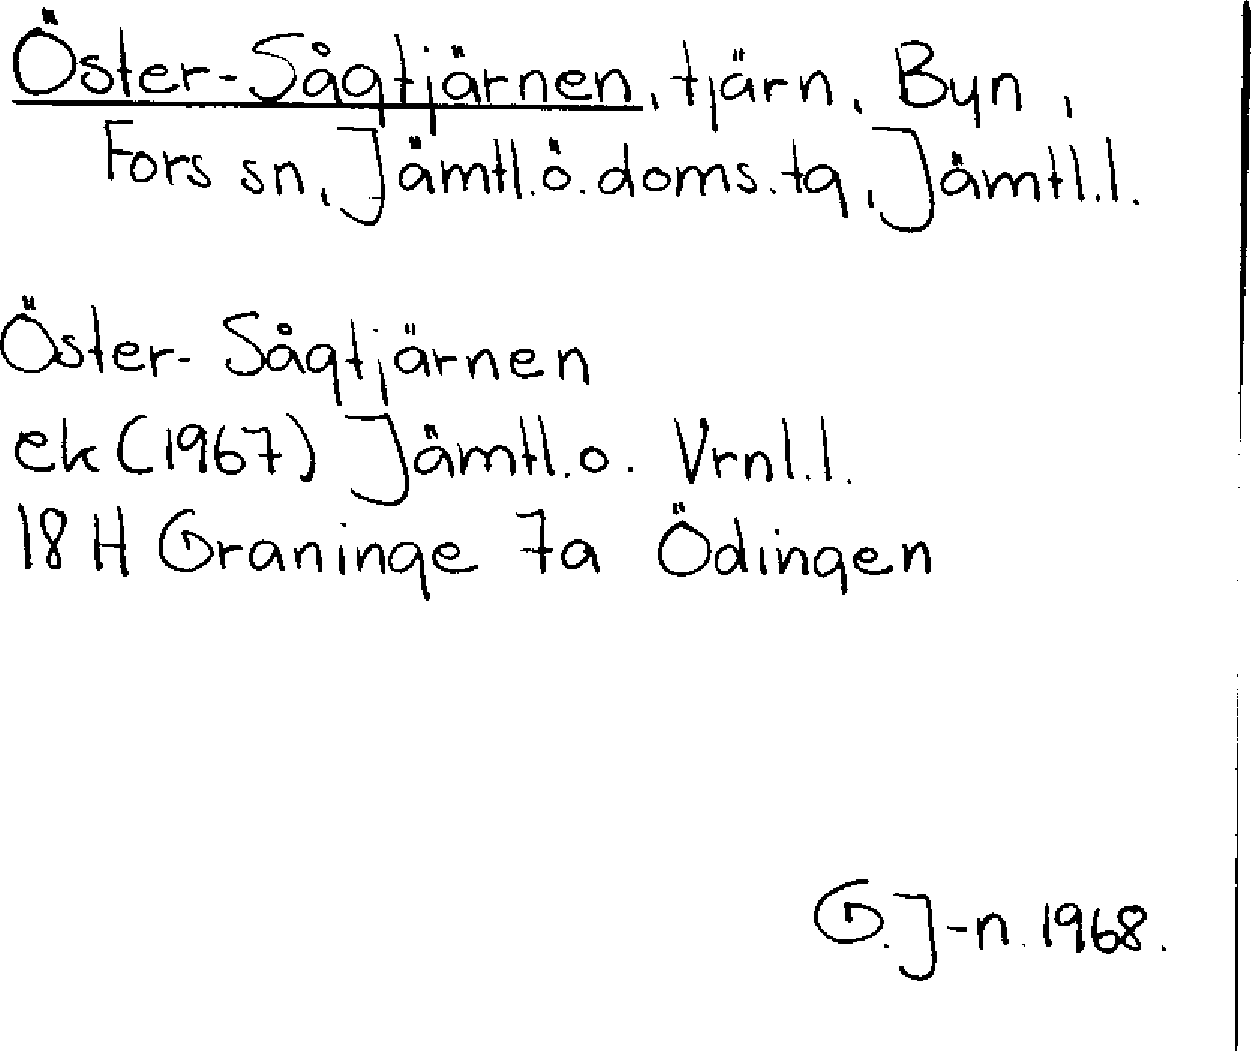 Öster-Sågtjärnen, tjärn, Byn,
Fors sn, Jämtl.ö.doms.tg, Jämtl.l.
Öster-Sågtjärnen
ek (1967) Jämtl.o. Vrnl.l.
18 H Graninge 7a Ödingen
G.J-n. 1968.